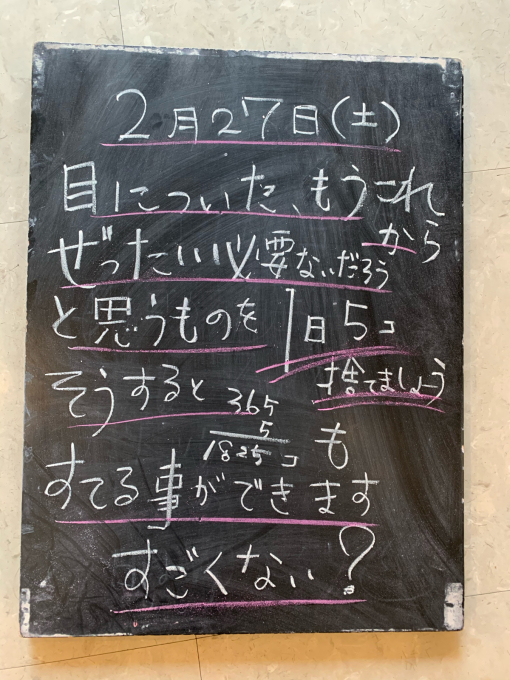 2月27日(土)
目についた、もうこれ
から
ぜったい必要ないだろう
と思うものを1日5コ
捨てましょう
そうすると
365
5
1825コも
すてる事ができます
すごくない?